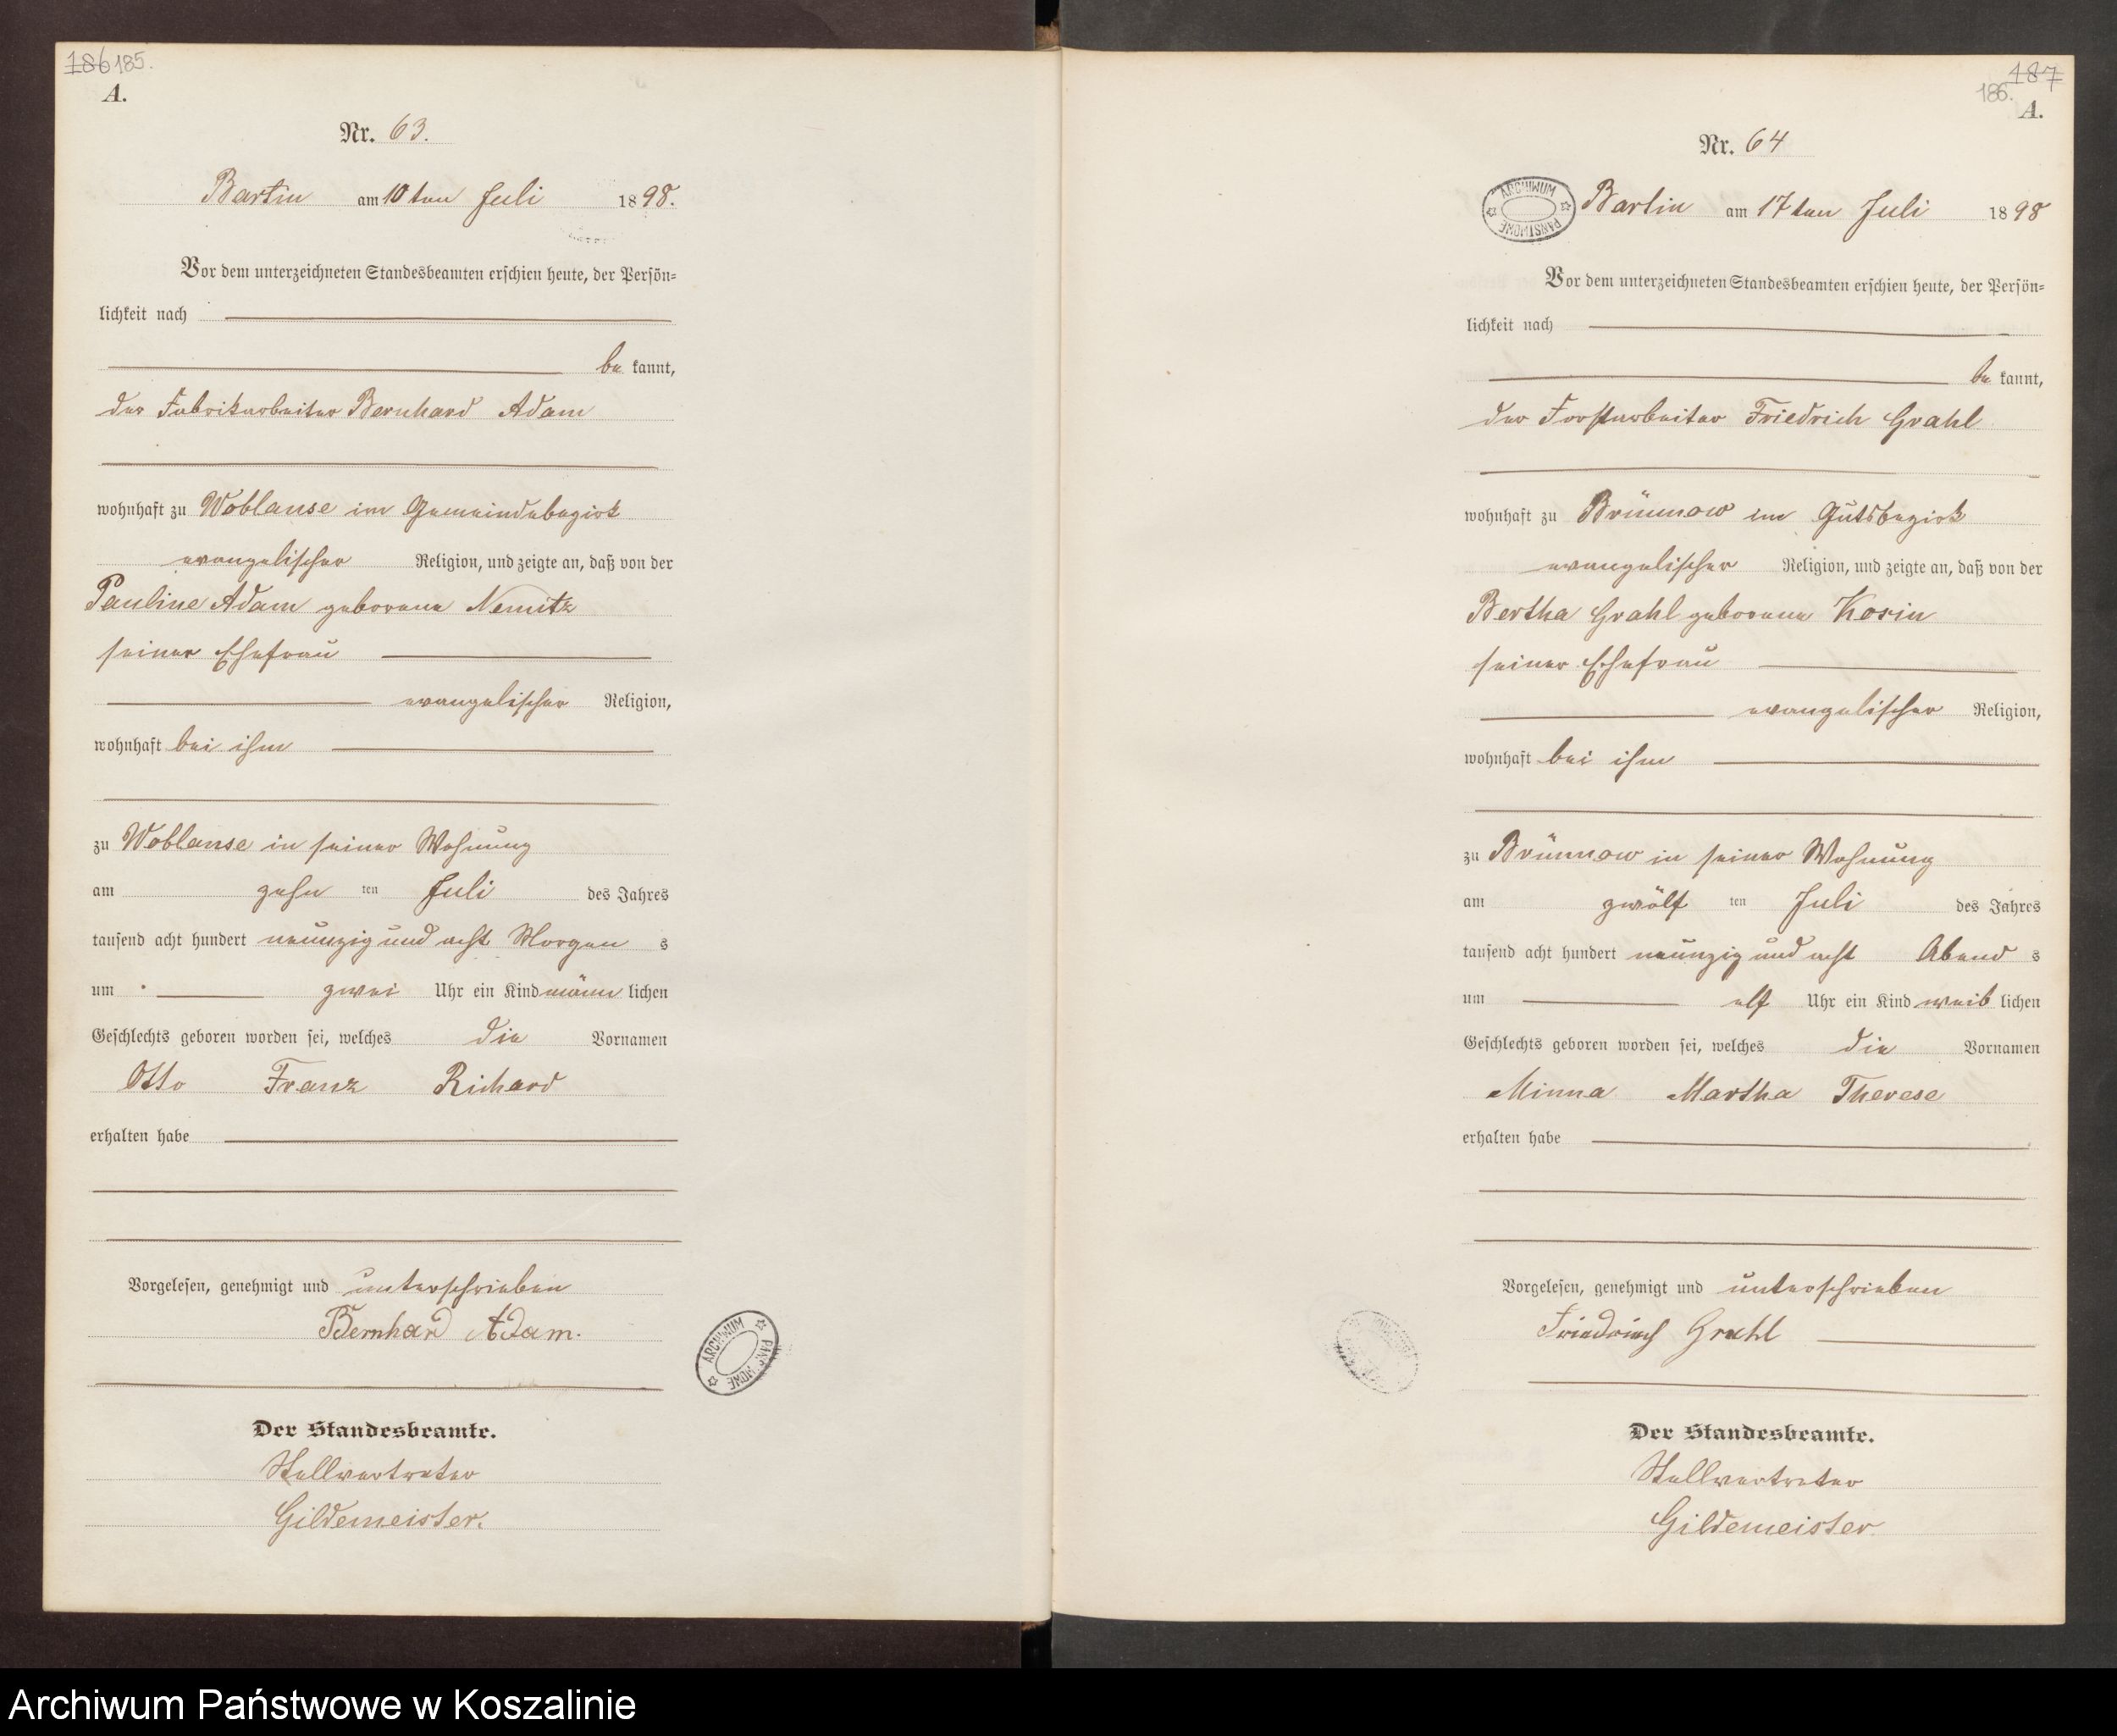 186 185.
A.
Nr. 63.
Bartin am 10ten Juli 1898.
Vor dem unterzeichneten Standesbeamten erschien heute, der Persön-
lichkeit nach
be kannt,
der Fabrikarbeiter Bernhard Adam
wohnhaft zu Woblanse im Gemeindebezirk
evangelischer Religion, und zeigte an, daß von der
Pauline Adam geborene Nemitz
seiner Ehefrau
evangelischer Religion,
wohnhaft bei ihm
zu Woblanse in seiner Wohnung
am zehn ten Juli des Jahres
tausend acht hundert neunzig und acht Morgen s
um zwei Uhr ein Kind männ lichen
Geschlechts geboren worden sei, welches die Vornamen
Otto Franz Richard
erhalten habe
Vorgelesen, genehmigt und unterschrieben
Bernhard Adam.
Der Standesbeamte.
Stellvertreter
Gildemeister.
ARCHIWUM PAŃSTWOWE
187
186.
A.
Nr. 64
ARCHIWUM PAŃSTWOWE
Bartin am 17ten Juli 1898
Vor dem unterzeichneten Standesbeamten erschien heute, der Persön-
lichkeit nach
be kannt,
der Forstarbeiter Friedrich Grahl
wohnhaft zu Brünnow im Gutsbezirk
evangelischer Religion, und zeigte an, daß von der
Bertha Grahl geborene Kosin
seiner Ehefrau
evangelischer Religion,
wohnhaft bei ihm
zu Brünnow in seiner Wohnung
am zwölf ten Juli des Jahres
tausend acht hundert neunzig und acht Abend s
um elf Uhr ein Kind weib lichen
Geschlechts geboren worden sei, welches die Vornamen
Minna Martha Therese
erhalten habe
Vorgelesen, genehmigt und unterschrieben
Friedrich Grahl
Der Standesbeamte.
Stellvertreter
Gildemeister
Archiwum Państwowe w Koszalinie